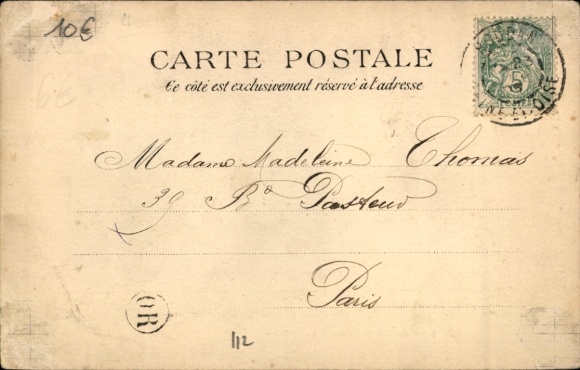 10€
6€
CARTE POSTALE
Ce côté est exclusivement réservé à l'adresse
5
OISE
Madame Madeleine Thomas
39 Bd Pasteur
Paris
OR
1/12